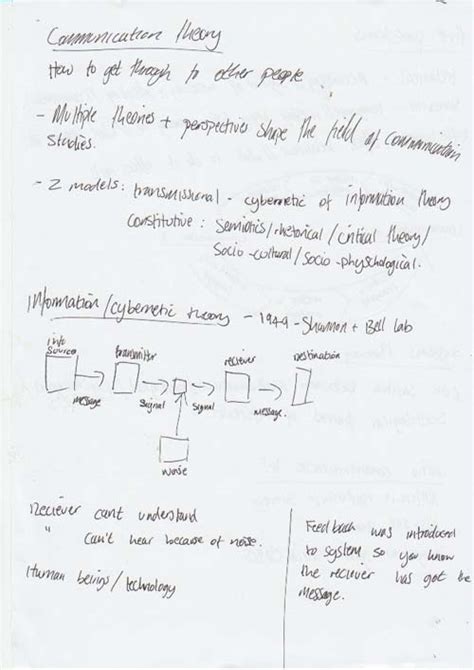 Communication theory
How to get through to other people...
- Multiple theories + perspectives shape the field of communication
studies.
- 2 models: transmissional - cybernetic of information theory
constitutive: Semiotics/rhetorical/critical theory/
Socio-cultural/socio-physchological.
Information/cybernetic theory - 1949 - Shannon + Bell lab
info transmitter reciever Destination
source
message Signal Signal message.
noise
Reciever cant understand
" Can't hear because of noise.
Human beings/technology
Feedback was introduced
to system so you know
the reciever has got the
message.